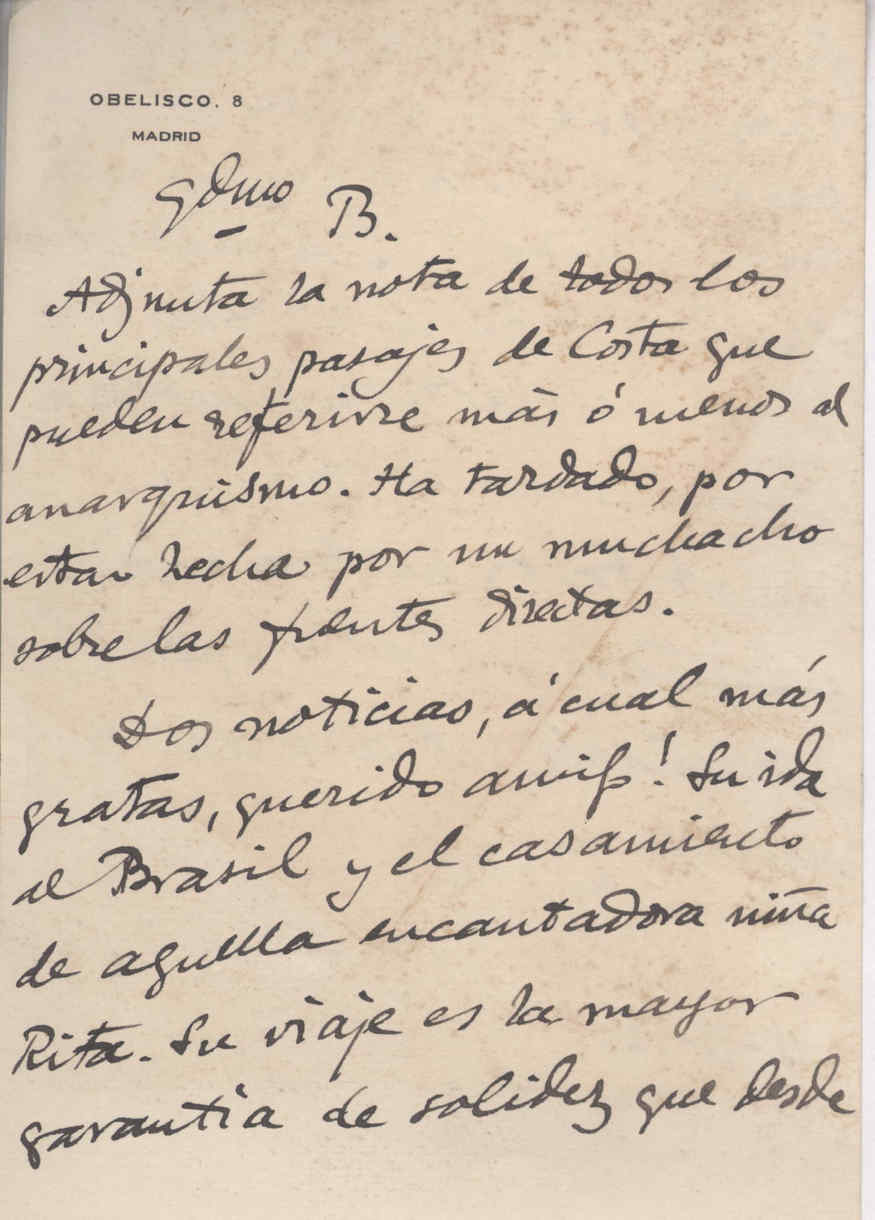 OBELISCO. 8
MADRID
Qdmo B.
Adjunta la nota de todos los
principales pasajes de Costa que
pueden referirse más ó menos al
anarquismo. Ha tardado, por
estar hecha por un muchacho
sobre las fuentes directas.
Dos noticias, á cual más
gratas, querido amigo! Su ida
al Brasil y el casamiento
de aquella encantadora niña
Rita. Su viaje es la mayor
garantia de solidez que desde